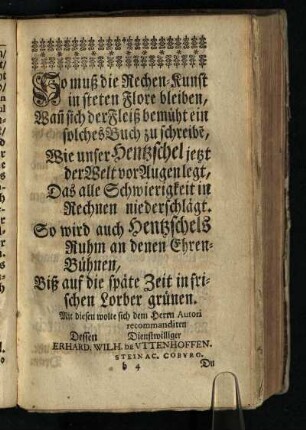 So muß die Rechen-Kunst
in steten Flore bleiben,
Wañ sich der Fleiß bemüht ein
solches Buch zu schreibē,
Wie unser Hentzschel jetzt
der Welt vor Augen legt,
Das alle Schwierigkeit in
Rechnen niederschlägt.
So wird auch Hentzschels
Ruhm an denen Ehren-
Bühnen,
Biß auf die späte Zeit in fri-
schen Lorber grünen.
Mit diesen wolte sich dem Herrn Autori
recommandiren
Dessen Dienstwilliger
ERHARD. WILH. de UTTENHOFFEN.
STEINAC. COBURG.
b 4 Du